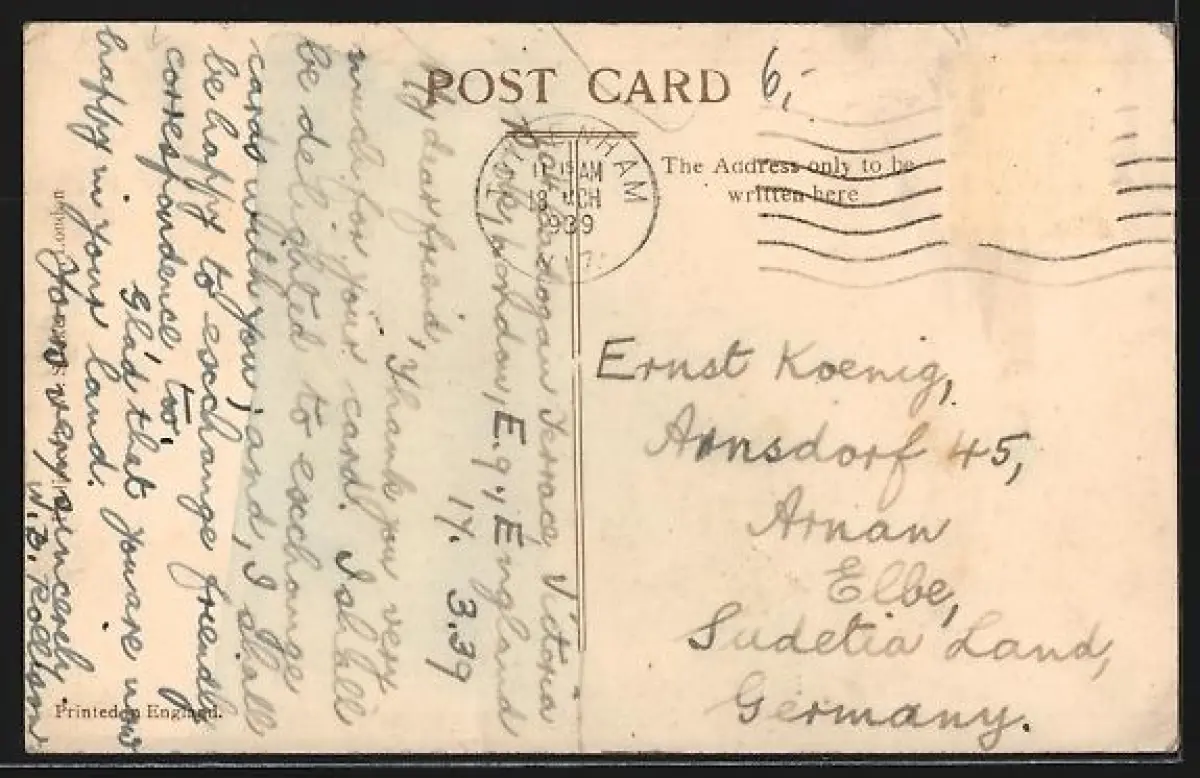 POST CARD
6,-
The Address only to be
written here
NHAM
11 15 AM
18 MCH
1939
Terrace, Victoria
Eg, England
17. 3.39
My dear friend,
Thank you very
much for your card. I shall
be delighted to exchange
cards with you, and, I shall
be happy to exchange friendly
correspondence too.
Glad that you are now
happy in your land.
Yours very sincerely
Ernst Koenig,
Arnsdorf 45,
Arnan
Elbe,
Sudetia Land,
Germany.
London
Printed in England.